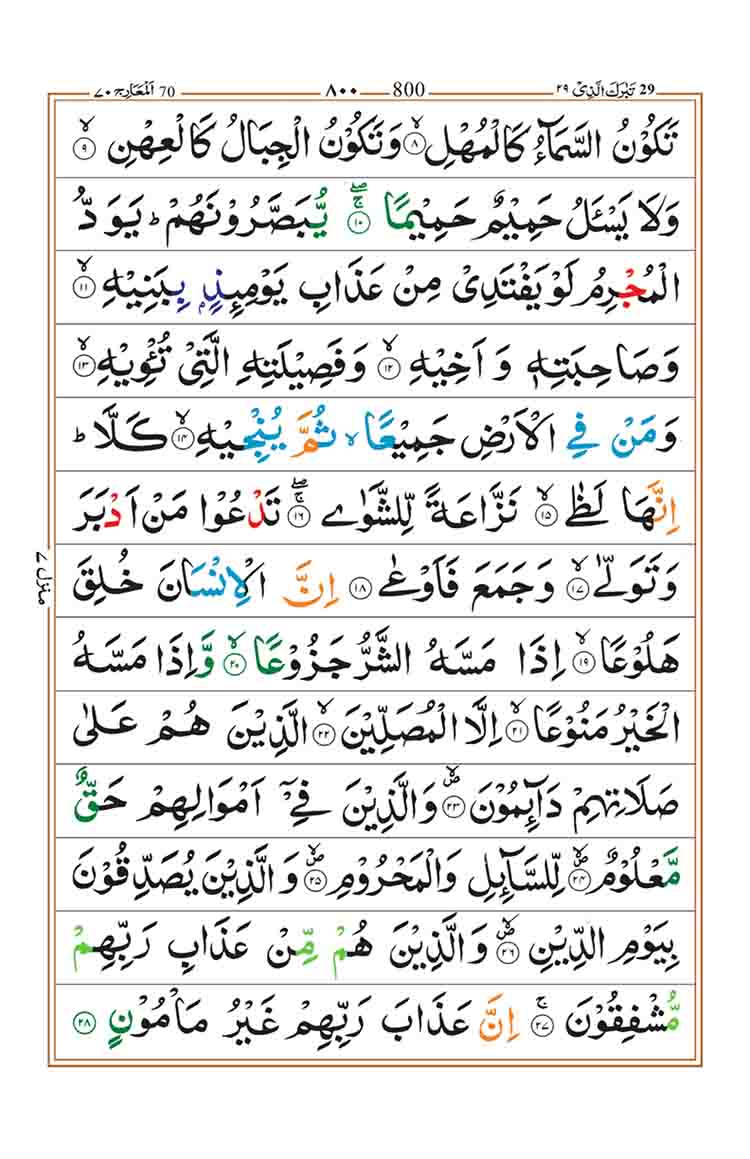 29 تَبٰرَكَ الَّذِیْ ٢٩ — 800 — ٨٠٠ — 70 اَلْمَعَارِج ٧٠
تَكُوْنُ السَّمَآءُ كَالْمُهْلِ ۙ‏﴿۸﴾ وَتَكُوْنُ الْجِبَالُ كَالْعِهْنِ ۙ‏﴿۹﴾
وَلَا يَسْـَٔلُ حَمِيْمٌ حَمِيْمًا ۚۖ‏﴿۱۰﴾ يُّبَصَّرُوْنَهُمْ ؕ يَوَدُّ
الْمُجْرِمُ لَوْ يَفْتَدِىْ مِنْ عَذَابِ يَوْمِئِذٍۢ بِبَنِيْهِ ۙ‏﴿۱۱﴾
وَصَاحِبَتِهٖ وَاَخِيْهِ ۙ‏﴿۱۲﴾ وَفَصِيْلَتِهِ الَّتِىْ تُـْٔوِيْهِ ۙ‏﴿۱۳﴾
وَمَنْ فِى الْاَرْضِ جَمِيْعًا ۙ ثُمَّ يُنْجِيْهِ ۙ‏﴿۱۴﴾ كَلَّا ؕ
اِنَّهَا لَظٰى ۙ‏﴿۱۵﴾ نَزَّاعَةً لِّلشَّوٰى ۚۖ‏﴿۱۶﴾ تَدْعُوْا مَنْ اَدْبَرَ
وَتَوَلّٰى ۙ‏﴿۱۷﴾ وَجَمَعَ فَاَوْعٰى ‏﴿۱۸﴾ اِنَّ الْاِنْسَانَ خُلِقَ
هَلُوْعًا ۙ‏﴿۱۹﴾ اِذَا مَسَّهُ الشَّرُّ جَزُوْعًا ۙ‏﴿۲۰﴾ وَّاِذَا مَسَّهُ
الْخَيْرُ مَنُوْعًا ۙ‏﴿۲۱﴾ اِلَّا الْمُصَلِّيْنَ ۙ‏﴿۲۲﴾ الَّذِيْنَ هُمْ عَلٰى
صَلَاتِهِمْ دَآئِمُوْنَ ۪ۙ‏﴿۲۳﴾ وَالَّذِيْنَ فِىْۤ اَمْوَالِهِمْ حَقٌّ
مَّعْلُوْمٌ ۪ۙ‏﴿۲۴﴾ لِّلسَّآئِلِ وَالْمَحْرُوْمِ ۪ۙ‏﴿۲۵﴾ وَالَّذِيْنَ يُصَدِّقُوْنَ
بِيَوْمِ الدِّيْنِ ۪ۙ‏﴿۲۶﴾ وَالَّذِيْنَ هُمْ مِّنْ عَذَابِ رَبِّهِمْ
مُّشْفِقُوْنَ ۚ‏﴿۲۷﴾ اِنَّ عَذَابَ رَبِّهِمْ غَيْرُ مَاْمُوْنٍ ‏﴿۲۸﴾
منزل ٧